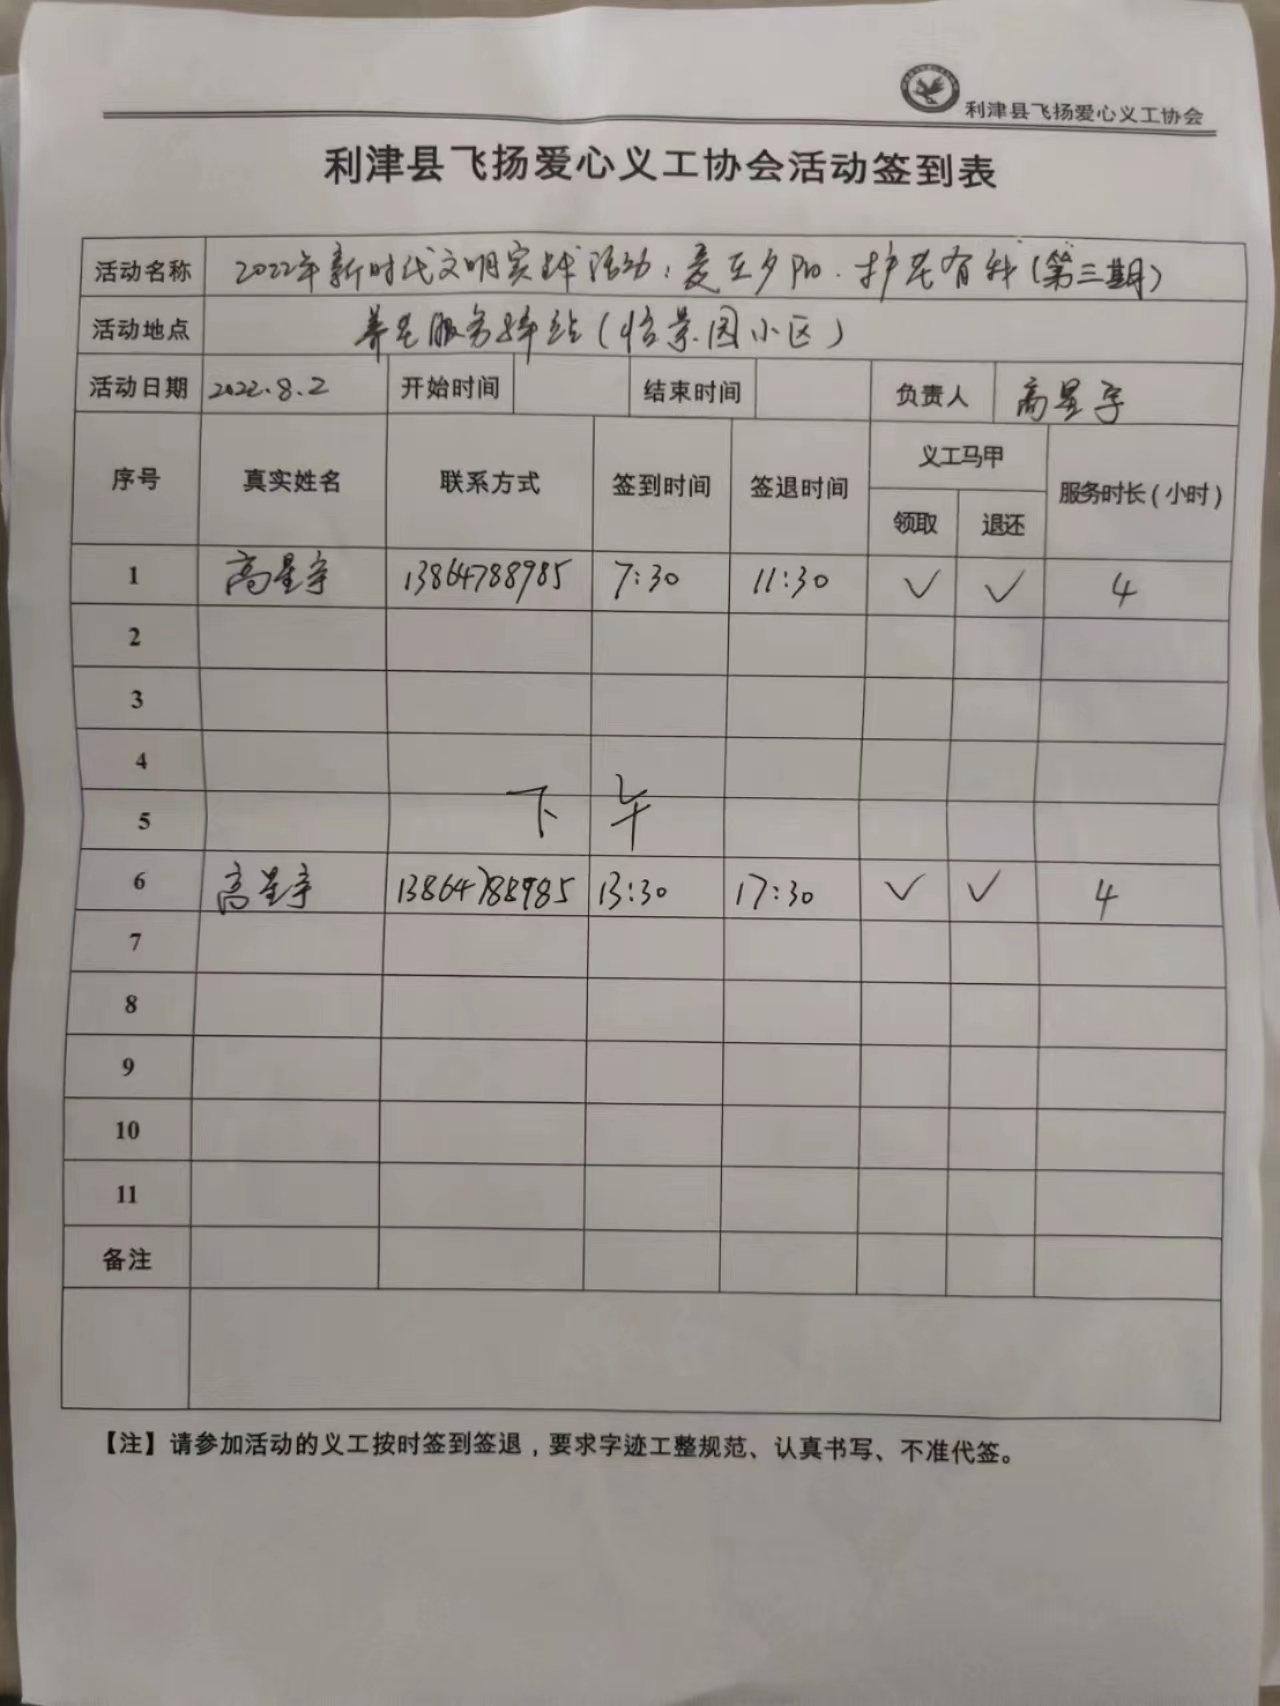 利津县飞扬爱心义工协会
利津县飞扬爱心义工协会活动签到表
活动名称 2022年新时代文明实践活动：爱在夕阳·护老有我（第三期）
活动地点 养老服务驿站（怡景园小区）
活动日期 2022.8.2 开始时间 结束时间 负责人 高星宇
序号 真实姓名 联系方式 签到时间 签退时间 义工马甲 服务时长（小时）
领取 退还
1 高星宇 13864788985 7:30 11:30 ✓ ✓ 4
2
3
4
下午
5
6 高星宇 13864788985 13:30 17:30 ✓ ✓ 4
7
8
9
10
11
备注
【注】请参加活动的义工按时签到签退，要求字迹工整规范、认真书写、不准代签。